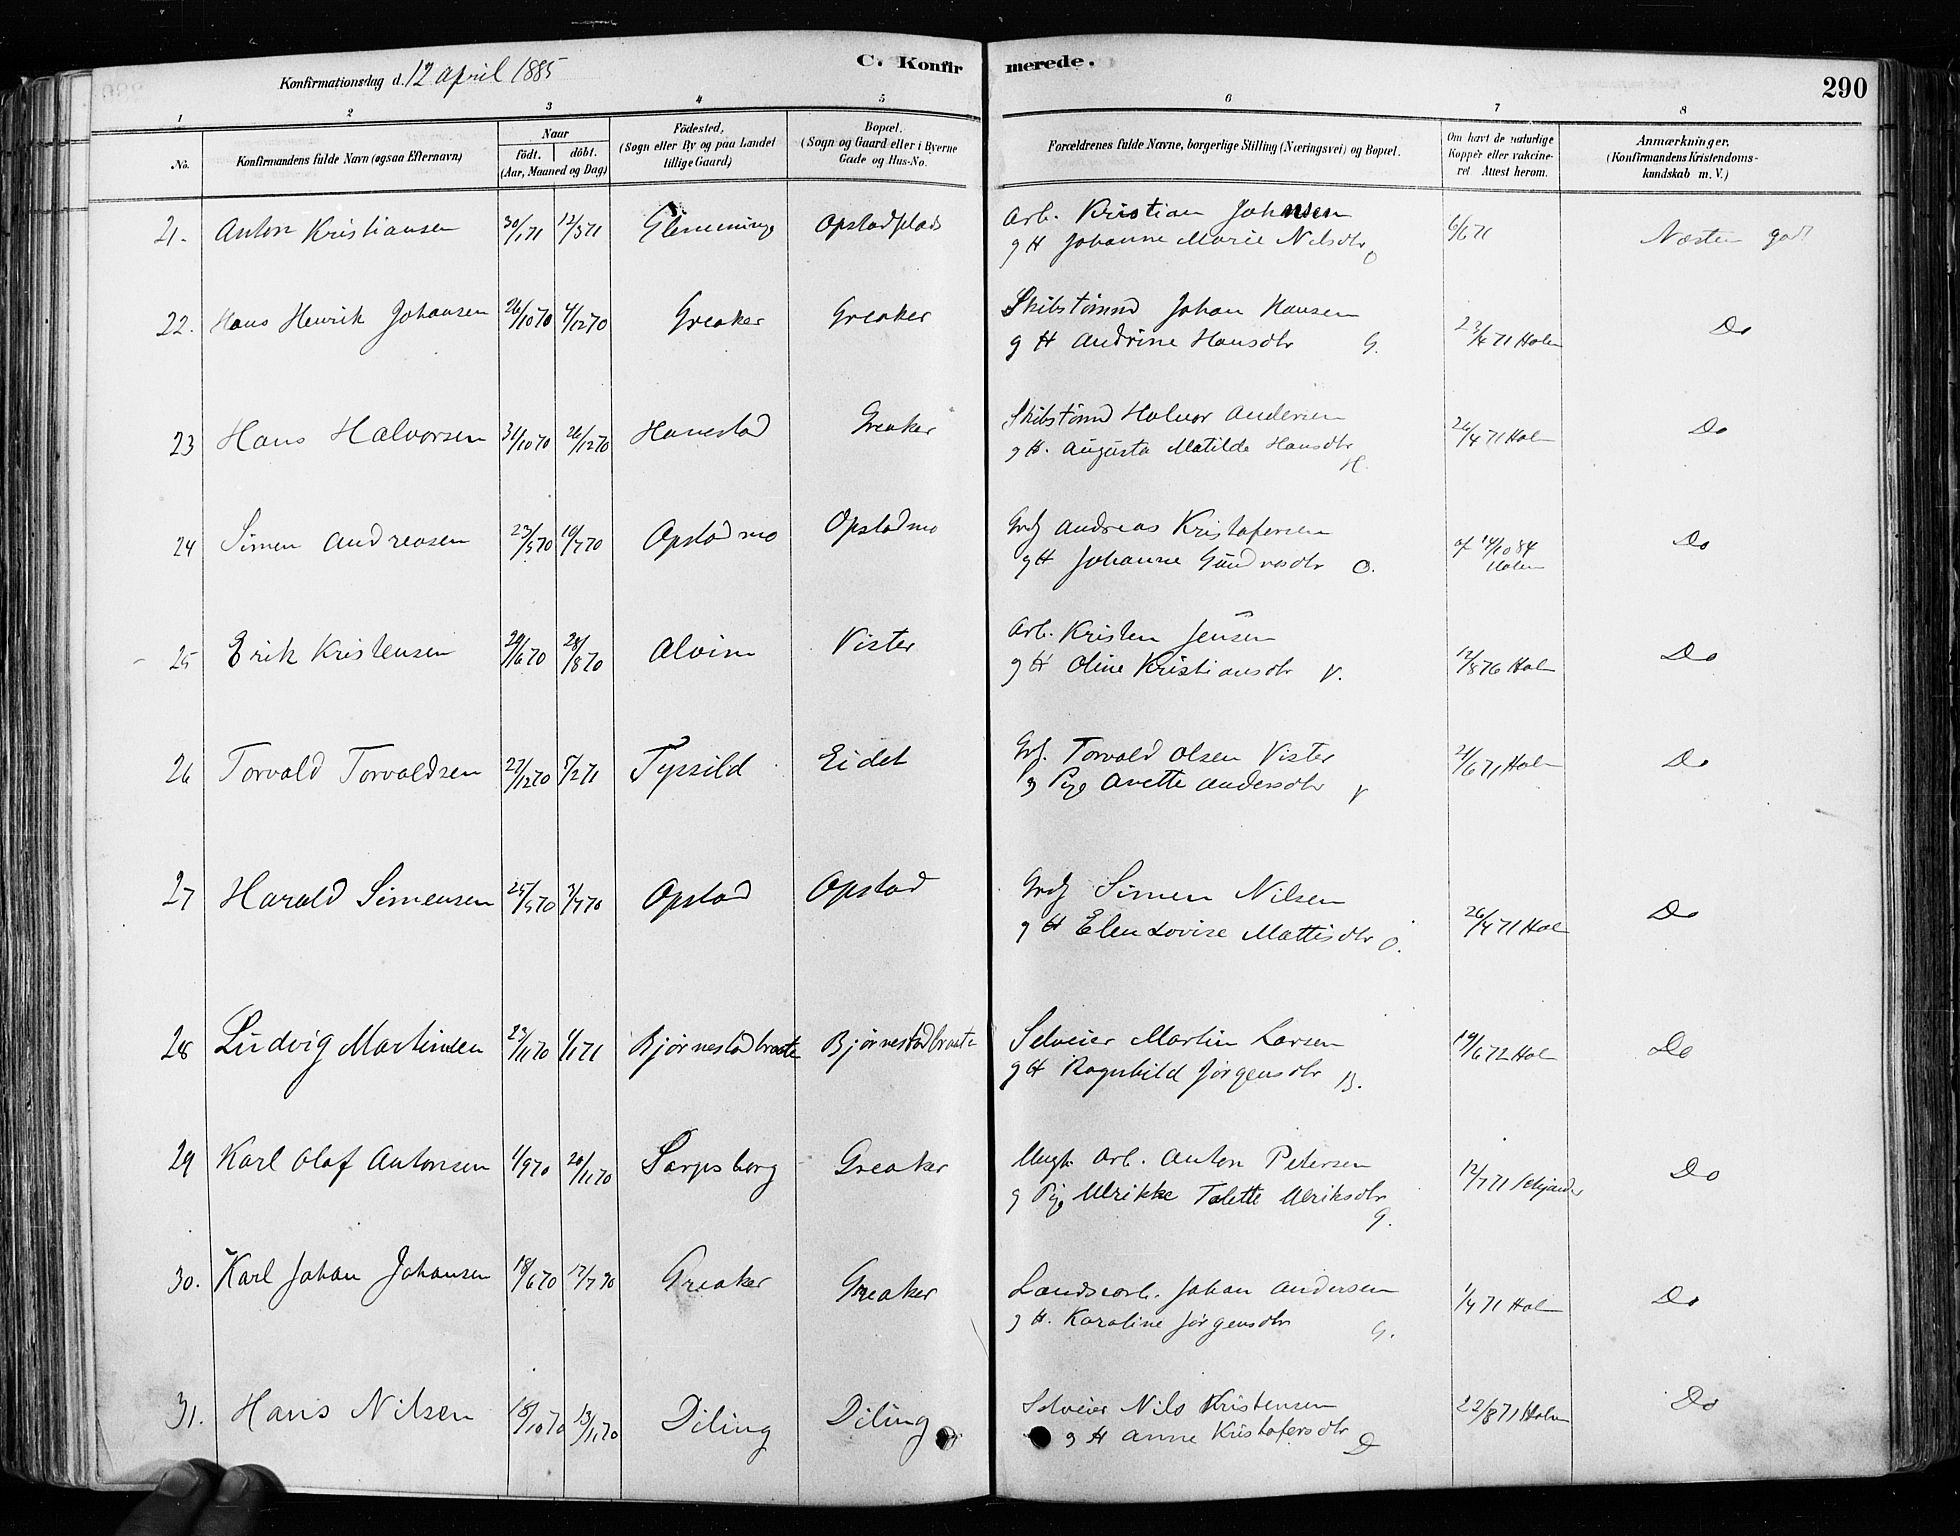 Konfirmationsdag d. 12 April 1885
C. Konfirmerede.
290
1 2 3 4 5 6 7 8
No. Konfirmandens fulde Navn (ogsaa Efternavn) Naar født. døbt. (Aar, Maaned og Dag) Fødested, (Sogn eller By og paa Landet tillige Gaard) Bopæl. (Sogn og Gaard eller i Byerne Gade og Hus-No. Forældrenes fulde Navne, borgerlige Stilling (Næringsvei) og Bopæl. Om havt de naturlige Kopper eller vakcineret Attest herom. Anmærkninger. (Konfirmandens Kristendomskundskab m. V.)
21. Anton Kristiansen 30/1 71 12/3 71 Glemminge Opstadplads Arb. Kristian Johnsen 6/6 71 Næsten godt
g H Johanne Marie Nilsdtr O
22. Hans Henrik Johansen 26/10 70 4/12 70 Greaker Greaker Skibstømmd Johan Hansen 23/4 71 Holm Do
g H Andrine Hansdtr G.
23 Hans Halvorsen 31/10 70 26/12 70 Hanestad Greaker Skibstømd Halvor Andersen 26/4 71 Holm Do
g H. Augusta Matilde Hansdtr H.
24 Simen Andreasen 23/5 70 10/7 70 Opstadmo Opstadmo Grdj Andreas Kristofersen af 14/10 84 Holm Do
g H Johanne Gundrosdtr O.
25 Erik Kristensen 29/6 70 28/8 70 Alvim Vister Arb. Kristen Jensen 12/8 76 Holm Do
g H Oline Kristiansdtr V.
26 Torvald Torvaldsen 27/12 70 5/2 71 Tyssild Eidet Grdj. Torvald Olsen Vister 21/6 71 Holm Do
g Pige Anette Andersdtr V
27 Harald Simensen 25/5 70 3/7 70 Opstad Opstad Grdj Simen Nilsen 26/4 71 Holm Do
g H Elen Lovise Mattisdtr O.
28 Ludvig Martinsen 23/11 70 1/1 71 Bjørnestadbraaten Bjørnestadbraaten Selveier Martin Larsen 19/6 72 Holm Do
g H Ragnhild Jørgensdtr B.
29 Karl Olaf Antonsen 1/9 70 20/11 70 Sarpsborg Greaker Ungk. Arb. Anton Petersen 12/7 71 Do
g Pige Ulrikke Talette Ulriksdtr G.
30. Karl Johan Johansen 18/6 70 17/7 70 Greaker Greaker Landsarb. Johan Andersen 1/4 71 Holm Do
g H. Karoline Jørgensdtr G.
31. Hans Nilsen 18/10 70 13/11 70 Diling Diling Selveier Nils Kristensen 22/8 71 Holm Do
g H Anne Kristofersdtr D